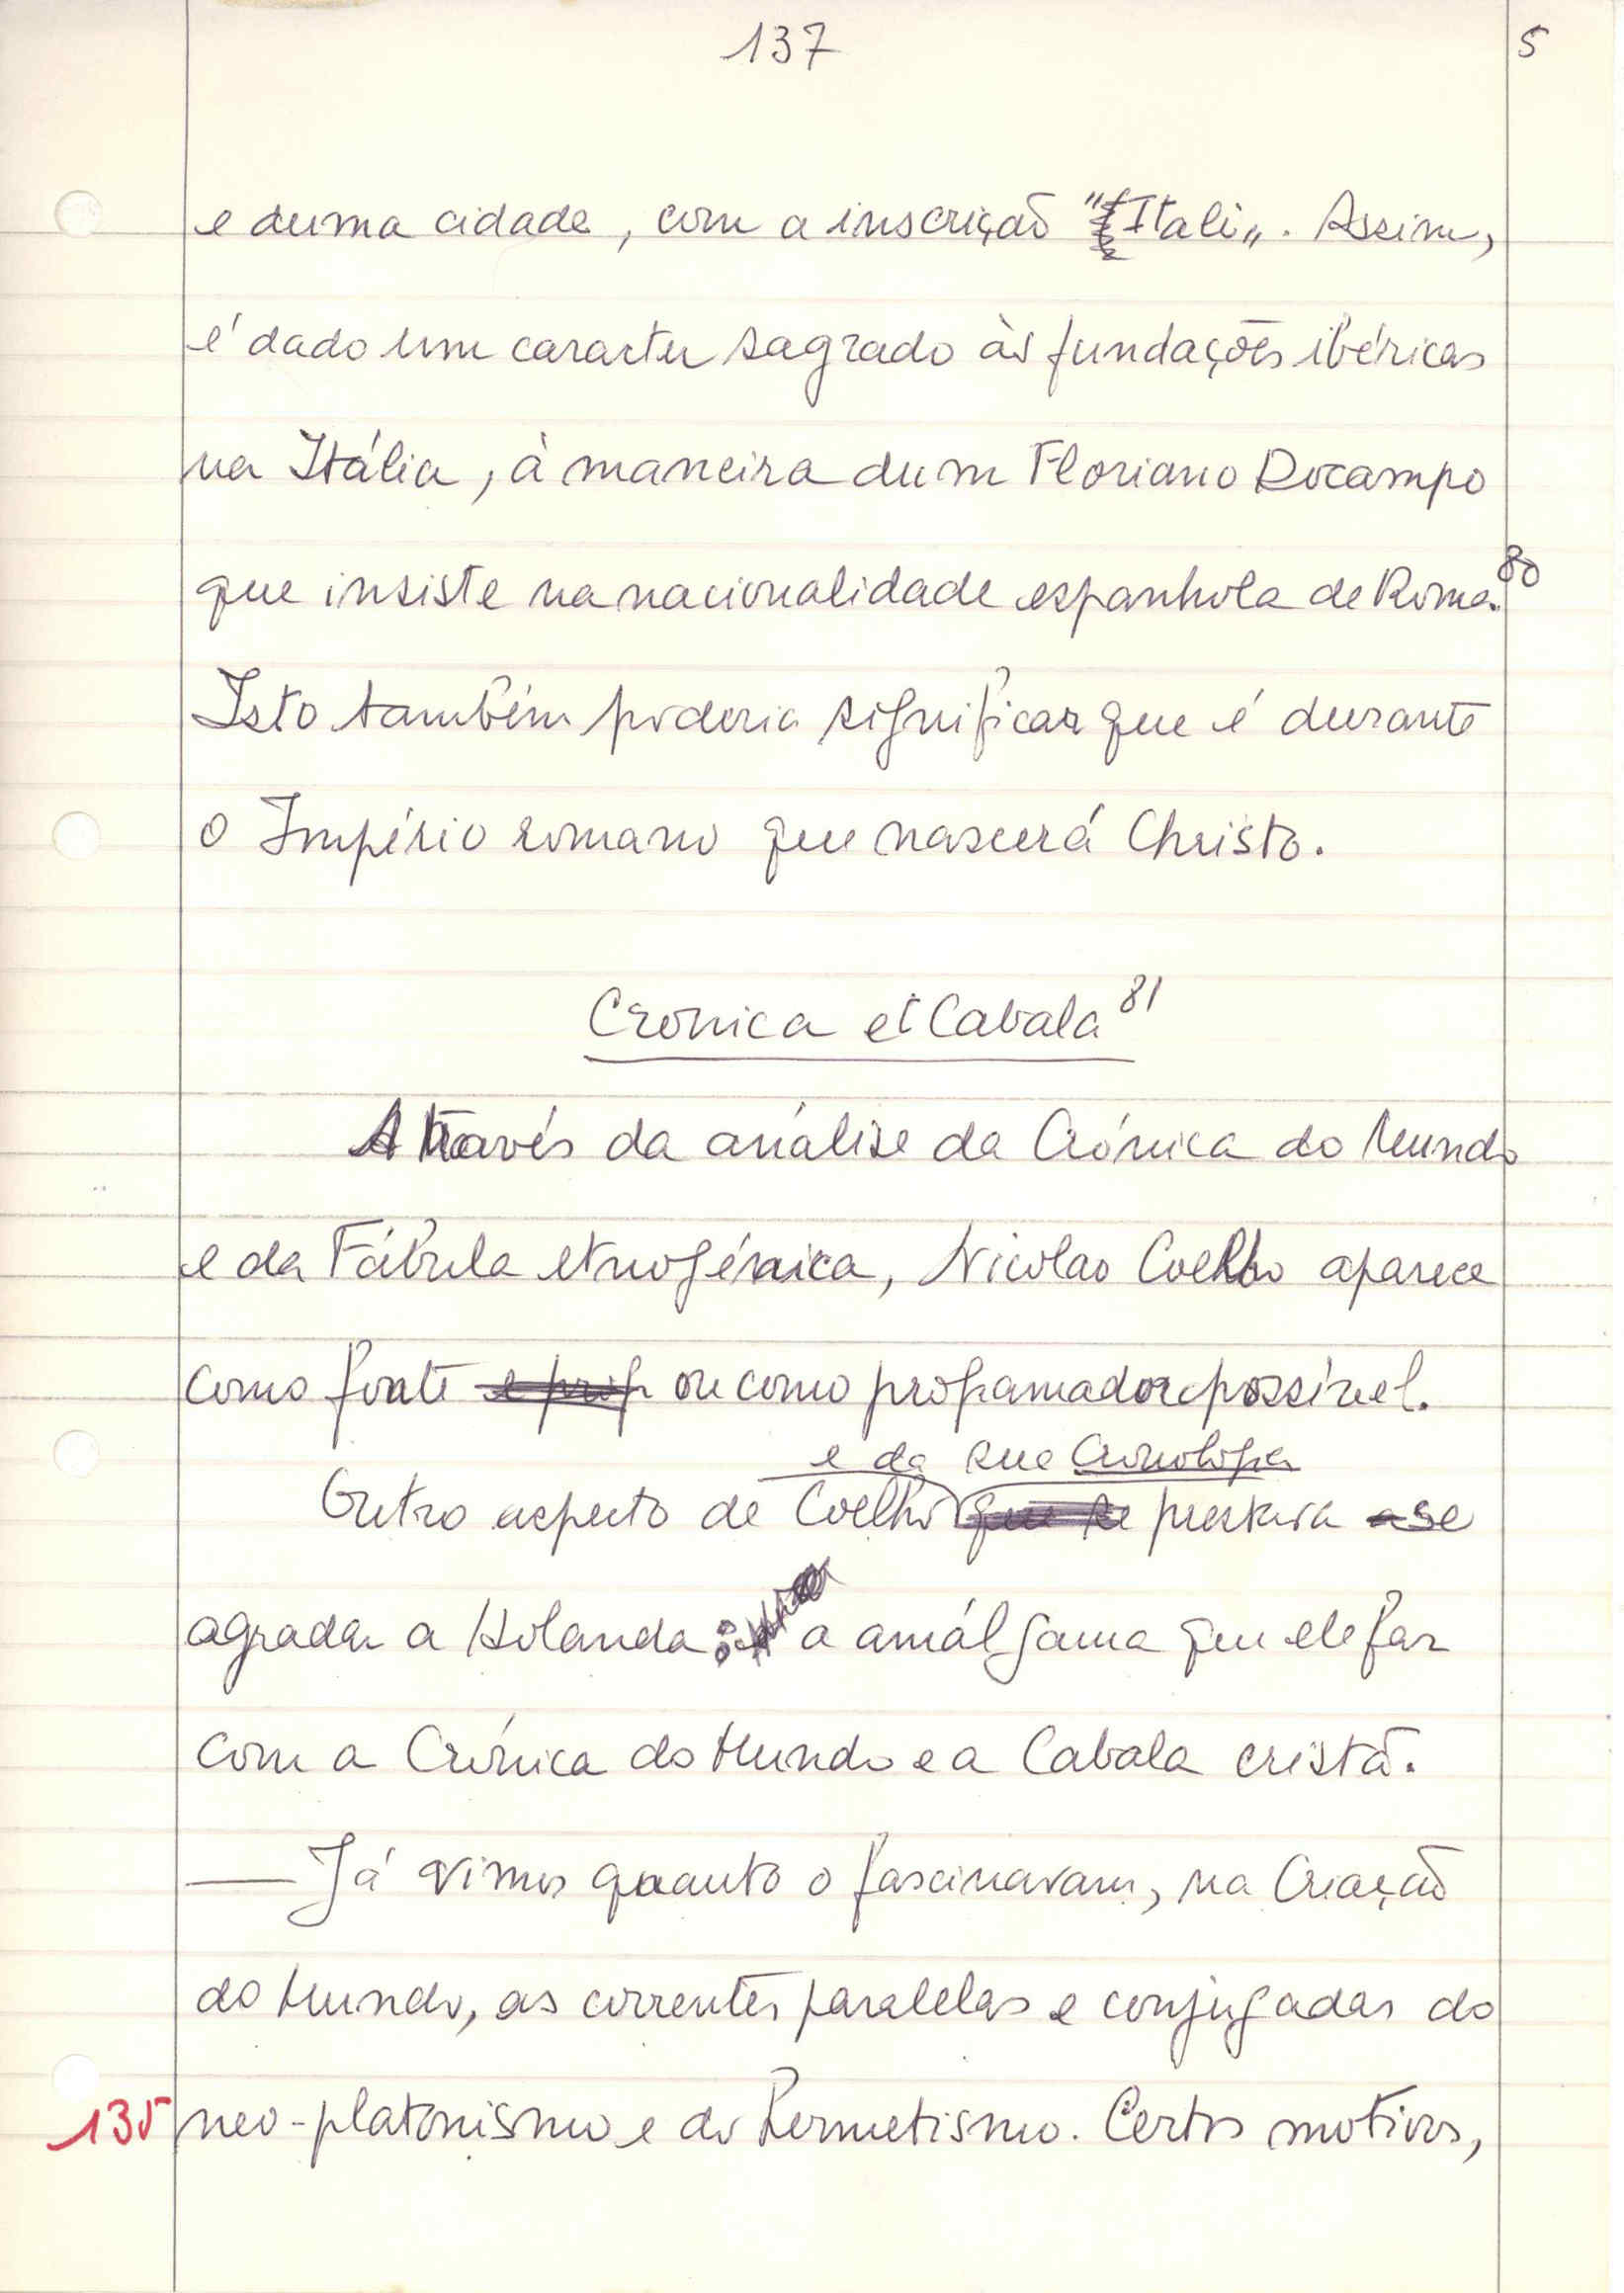 137
5
e duma cidade, com a inscrição "Itali„. Assim,
é dado um caracter sagrado às fundações ibéricas
na Itália, à maneira dum Floriano Docampo
que insiste na nacionalidade espanhola de Roma.80
Isto também poderia significar que é durante
o Império romano que nascerá Christo.
Cronica et Cabala 81
Através da análise da Crónica do Mundo
e da Fábula etnogénica, Nicolao Coelho aparece
como fonte e prog ou como programador possível.
e da sua Cronologia
Outro aspecto de Coelho que se prestava a se
agradar a Holanda: a amálgama que ele faz
com a Crónica do Mundo e a Cabala cristã.
— Já vimos quanto o fascinavam, na Criação
do Mundo, as correntes paralelas e conjugadas do
135 neo-platonismo e do hermetismo. Certos motivos,